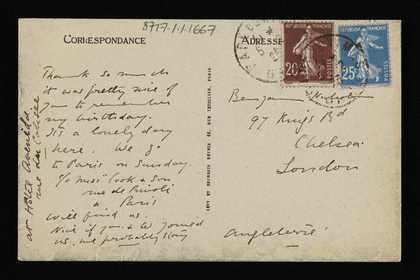 8717.1.1.1667
CORRESPONDANCE
Thank so much
it was pretty nice of
you to remember
my birthday.
It's a lovely day
here. We go
to Paris on Sunday.
c/o Miss Cook & Son
rue de Rivoli
à Paris
will find us.
Nice if you & 
us, we probably stay
at Hôtel
rue du Colisée
ADRESSE
POSTES
20
POSTES
25
Ben Nicholson
97 King's Rd
Chelsea
London
Angleterre